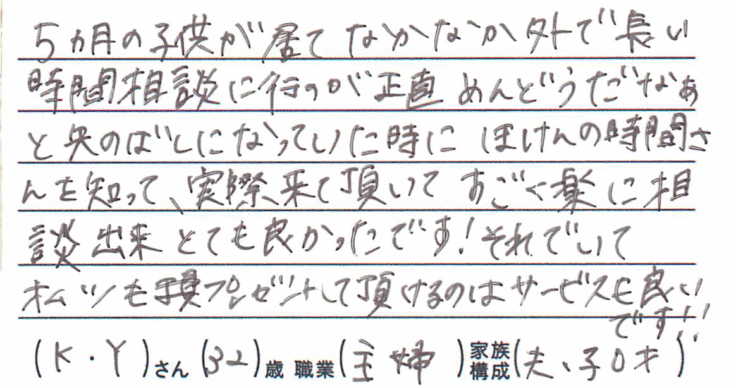 5ヵ月の子供が居て なかなか外で長い
時間相談に行のが正直 めんどうだなぁ
と先のばしになっていた時に ほけんの時間さ
んを知って、実際来て頂いて すごく楽に相
談出来 とても良かったです！それでいて
オムツも プレゼントして頂けるのはサービスも良い
です！！
(K・Y)さん (32)歳 職業(主婦)家族構成(夫、子0才)